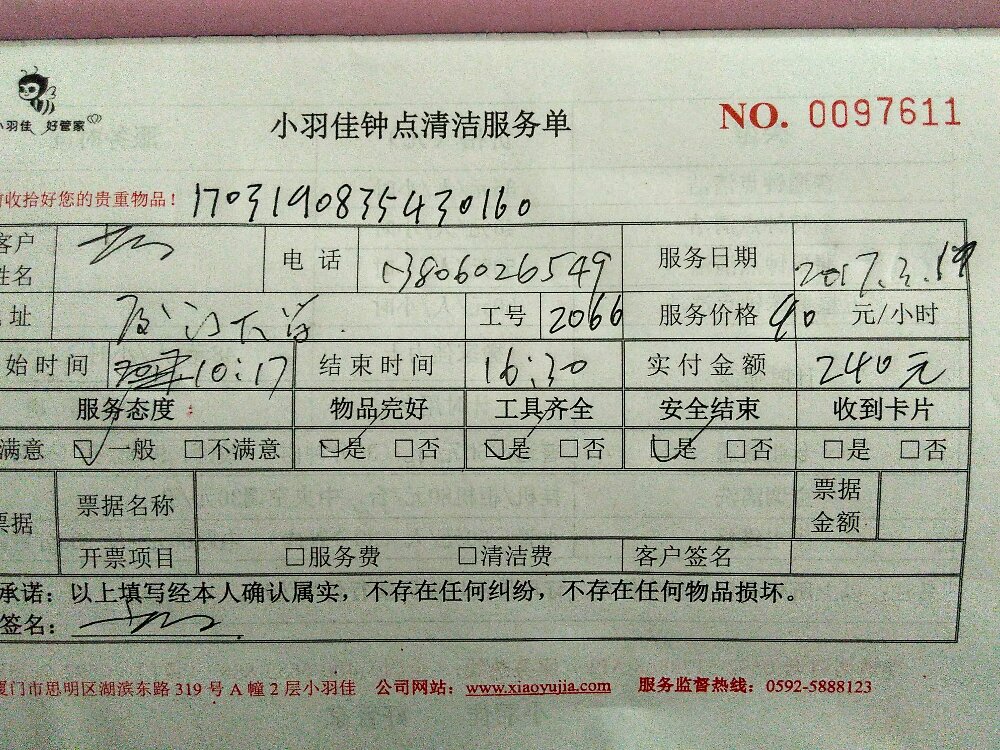 小羽佳 好管家
小羽佳钟点清洁服务单
NO. 0097611
收拾好您的贵重物品！ 1703190835430160
客户姓名 电 话 13806026549 服务日期 2017.3.19
址 厦门大学. 工号 2066 服务价格 40 元/小时
始时间 10:17 结束时间 16:30 实付金额 240元
服务态度： 物品完好 工具齐全 安全结束 收到卡片
满意 ☑一般 □不满意 ☑是 □否 ☑是 □否 ☑是 □否 □是 □否
票据 票据名称 票据金额
开票项目 □服务费 □清洁费 客户签名
承诺：以上填写经本人确认属实，不存在任何纠纷，不存在任何物品损坏。
签名：
厦门市思明区湖滨东路 319 号 A 幢 2 层小羽佳 公司网站：www.xiaoyujia.com 服务监督热线：0592-5888123